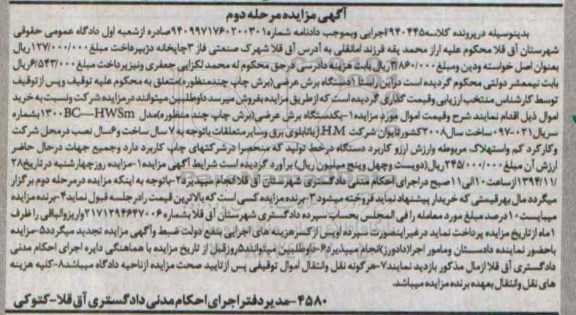 آگهی مزایده مرحله دوم
بدینوسیله در پرونده کلاسه ۹۴۰۴۴۵ اجرایی وبموجب دادنامه شماره ۹۴۰۹۹۷۱۷۶۰۲۰۰۳۰۱ صادره از شعبه اول دادگاه عمومی حقوقی
شهرستان آق قلا محکوم علیه اراز محمد پقه فرزند امانقلی به آدرس آق قلا شهرک صنعتی فاز ۳ چاپخانه دژ بپرداخت مبلغ ۱۲۷/۰۰۰/۰۰۰ ریال
بعنوان اصل خواسته ودین ومبلغ ۳/۸۶۰/۰۰۰ ریال بابت هزینه دادرسی در حق محکوم له محمد لکزایی جعفری ونیز پرداخت مبلغ ۶/۵۴۳/۰۰۰ ریال
بابت نیمعشر دولتی محکوم گردیده است در این راستا ۱ دستگاه برش عرضی (برش چاپ چند منظوره) متعلق به محکوم علیه توقیف وپس از توقیف
توسط کارشناس منتخب ارزیابی وقیمت گذاری گردیده است که از طریق مزایده بفروش میرسد داوطلبین میتوانند در مزایده شرکت ونسبت به خرید
اموال ذیل اقدام نمایند شرح وقیمت اموال مورد مزایده ۱-یکدستگاه برش عرضی (برش چاپ چند منظوره) مدل ۱۳۰۰BC—HWSm بشماره
سریال ۰۲۱-۰۹۷ ساخت سال ۲۰۰۸ کشور تایوان شرکت H.M با تابلوی برق وسایر متعلقات باتوجه به ۷ سال ساخت و۶ سال نصب در محل شرکت
وکارکرد کم واستهلاک مربوطه وارزش ارزو کاربرد دستگاه در خط تولید که منحصرا در شرکتهای چاپ کاربرد دارد وجمیع جهات در حال حاضر
ارزش آن مبلغ ۲۴۵/۰۰۰/۰۰۰ ریال (دویست وچهل وپنج میلیون ریال) برآورد گردیده است شرایط مزایده آگهی ۱-مزایده روز چهارشنبه در تاریخ ۲۸
/۱۳۹۴/۱۱ از ساعت ۱۰ الی ۱۱ صبح در اجرای احکام مدنی دادگستری شهرستان آق قلا انجام میپذیرد ۲-باتوجه به اینکه مزایده در مرحله دوم برگزار
میگردد مال بهر قیمتی که خریدار پیشنهاد نماید فروخته میشود ۳-برنده مزایده کسی است که بالاترین قیمت را در جلسه قبول نماید ۴-برنده مزایده
میبایست ۱۰ درصد مبلغ مورد معامله را فی المجلس بحساب سپرده دادگستری شهرستان آق قلا بشماره ۲۱۷۱۲۹۴۶۴۷۰۰۶ واریز والباقی را ظرف
۱ ماه از تاریخ مزایده پرداخت نماید در غیر اینصورت سپرده اولیه پس از کسر هزینه های اجرایی بنفع دولت ضبط وآگهی مزایده تجدید میگردد ۵-مزایده
باحضور نماینده دادستان ومامور اجرا (دادورز) انجام میپذیرد ۶-داوطلبین میتوانند ۵ روز قبل از تاریخ مزایده با هماهنگی دایره اجرای احکام مدنی
دادگستری آق قلا از مال مذکور بازدید نمایند ۷-هرگونه نقل وانتقال اموال توقیفی پس از تایید صحت مزایده از ناحیه دادگاه میباشد ۸-کلیه هزینه
های نقل وانتقال بعهده برنده مزایده میباشد.
۴۵۸۰-مدیر دفتر اجرای احکام مدنی دادگستری آق قلا-کتوکی